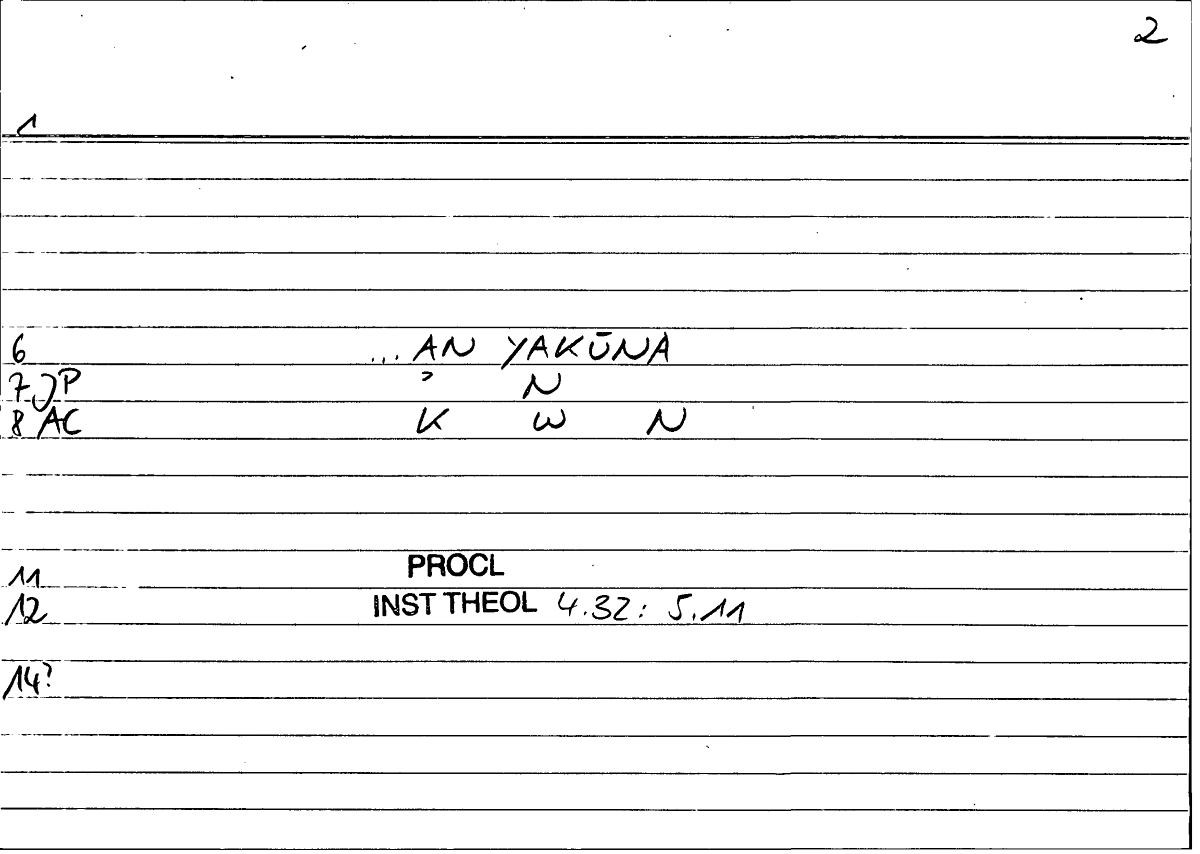 2
1
6 ... AN YAKŪNA
7 JP ʾ N
8 AC K W N
11 PROCL
12 INST THEOL 4.32: 5.11
14?